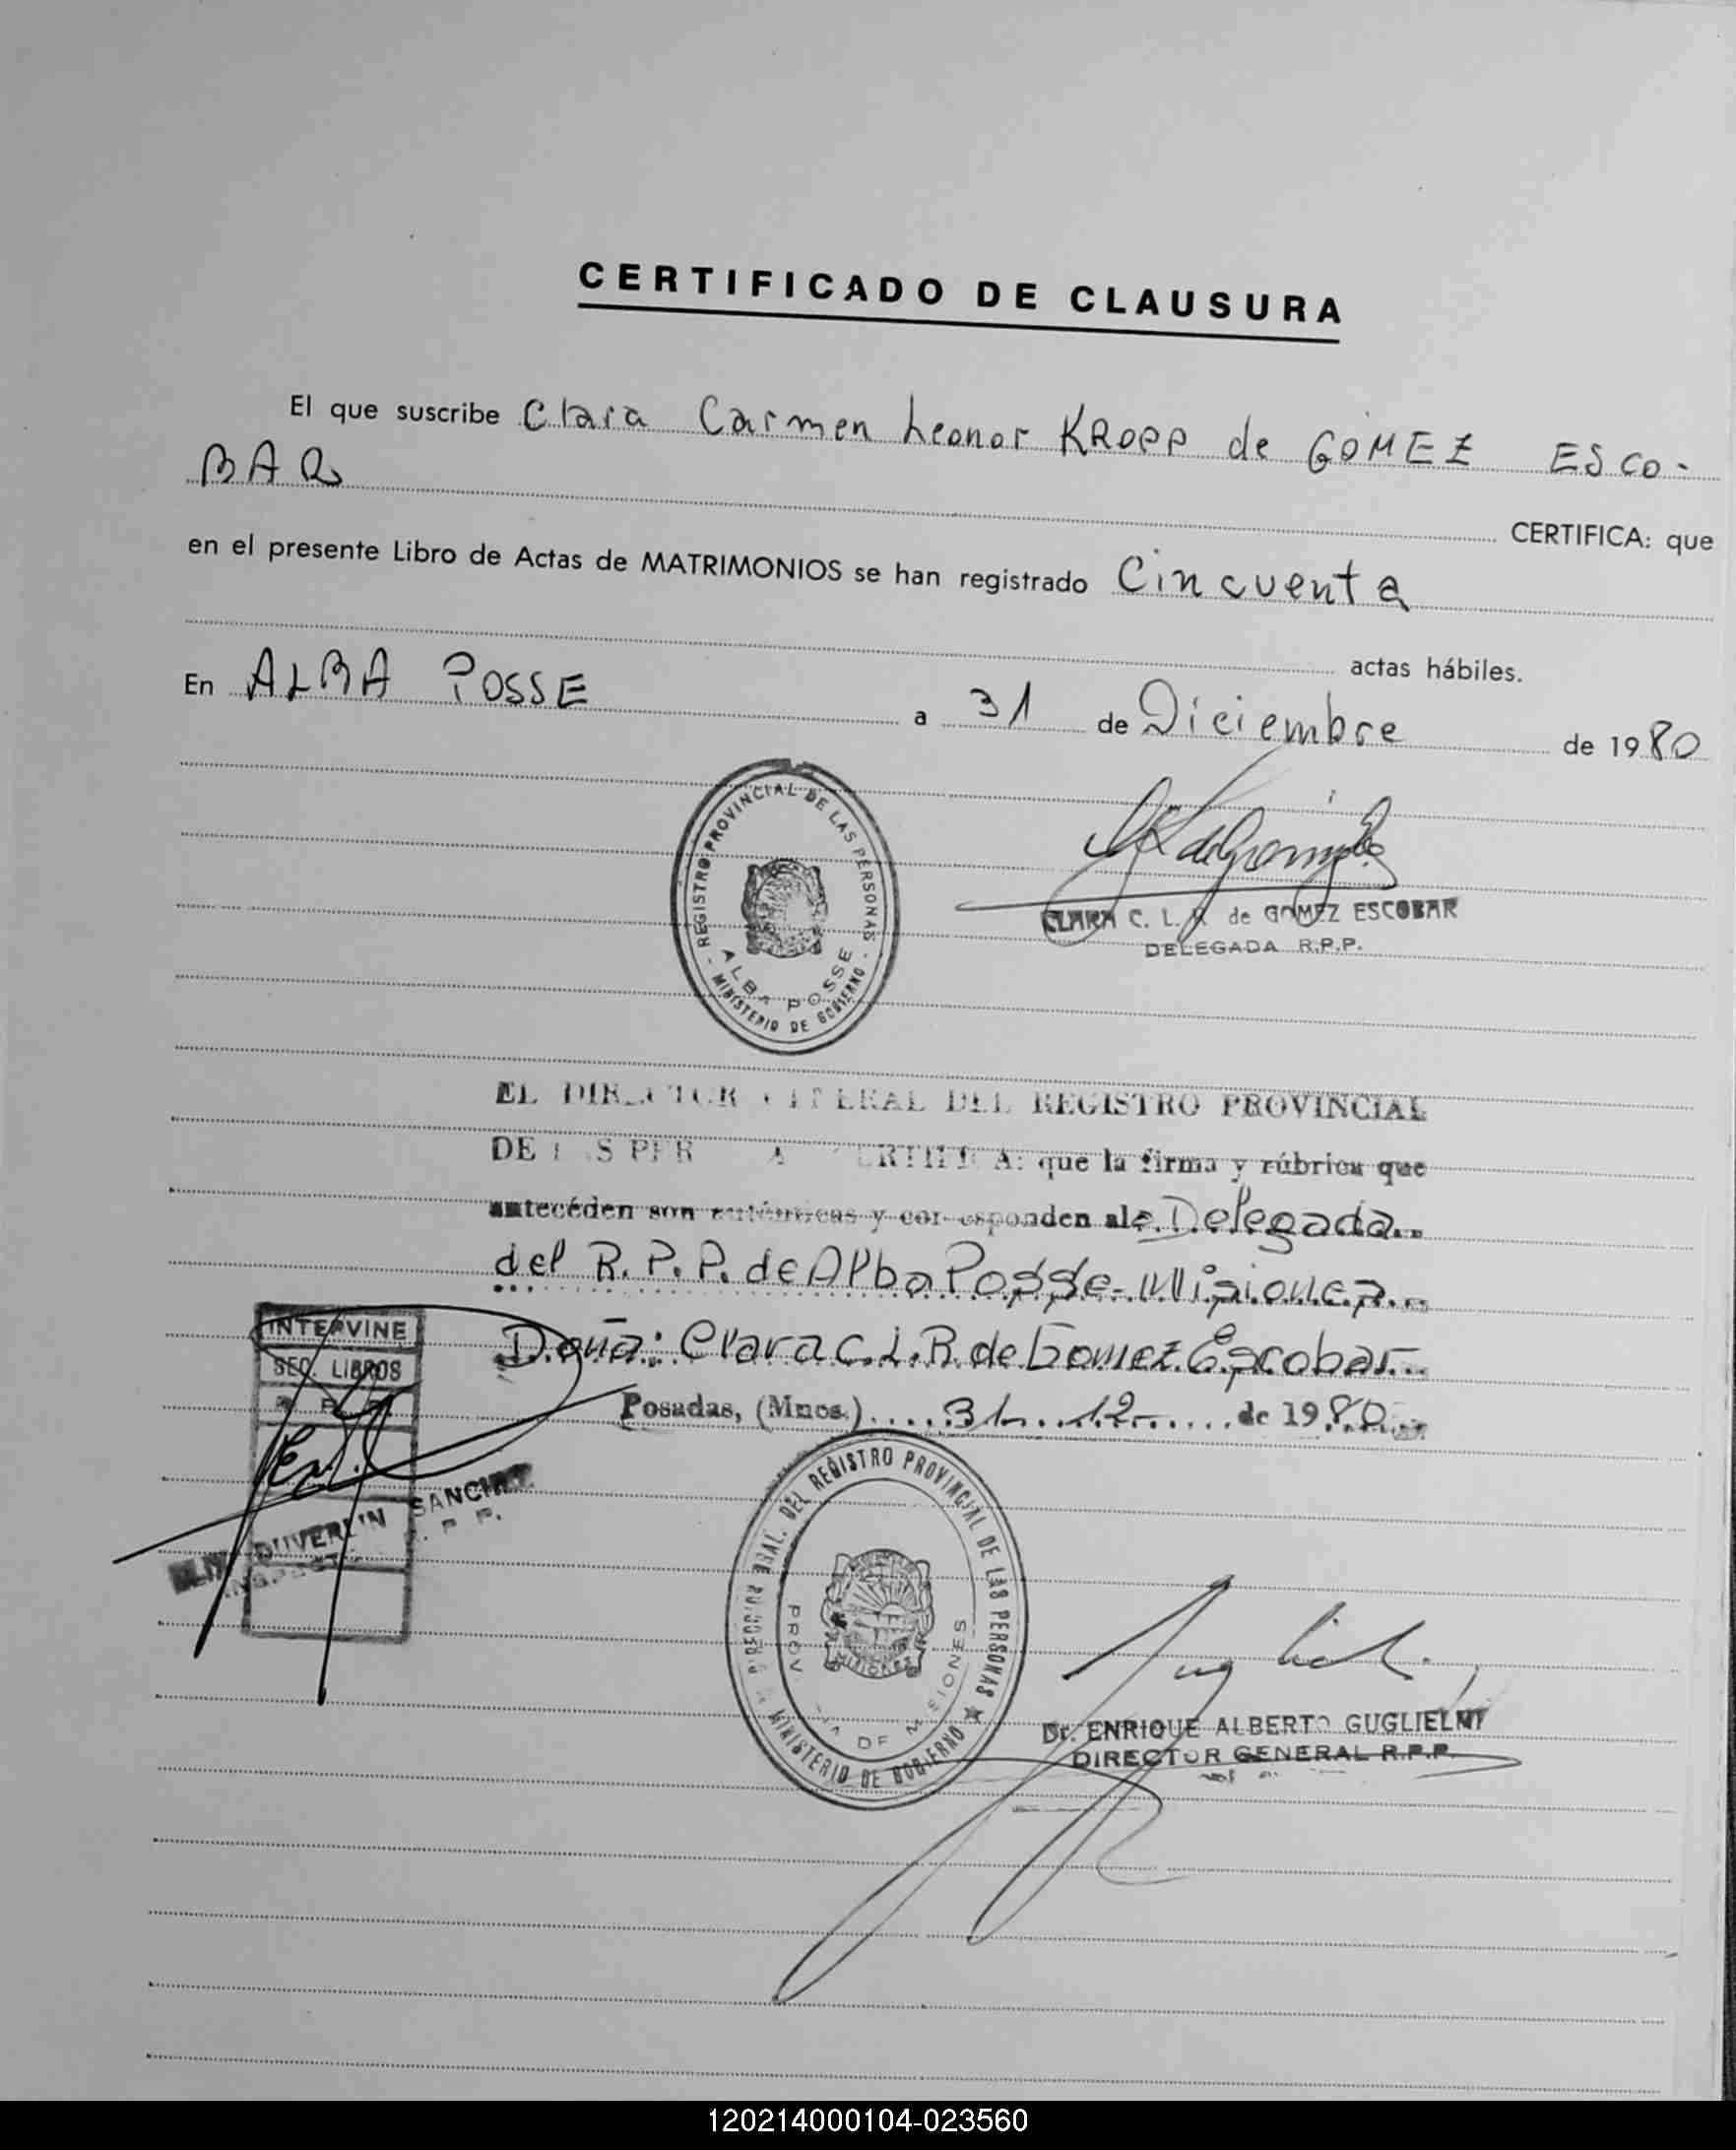 CERTIFICADO DE CLAUSURA
El que suscribe Clara Carmen Leonor KROPP de GOMEZ ESCO-
BAR
CERTIFICA: que
en el presente Libro de Actas de MATRIMONIOS se han registrado Cincuenta
actas hábiles.
En ALBA POSSE a 31 de Diciembre de 1980
REGISTRO PROVINCIAL DE LAS PERSONAS
ALBA POSSE
- MINISTERIO DE GOBIERNO -
CLARA C. L. K. de GOMEZ ESCOBAR
DELEGADA R.P.P.
EL DIRECTOR GENERAL DEL REGISTRO PROVINCIAL
DE LAS PER CERTIFICA: que la firma y rúbrica que
anteceden son auténticas y corresponden a la Delegada
del R. P. P. de Alba Posse - Misiones
Doña: Clara C. L. R. de Gomez Escobar
Posadas, (Mnes.) 31 12 de 1980
INTERVINE
SEC. LIBROS
R. P. P.
DUVERLIN SANCHEZ
INSPECT R. P. P.
GRAL. DEL REGISTRO PROVINCIAL DE LAS PERSONAS
MINISTERIO DE GOBIERNO
PROVINCIA DE MISIONES
MISIONES
Dr. ENRIQUE ALBERTO GUGLIELMI
DIRECTOR GENERAL R.P.P.
120214000104-023560